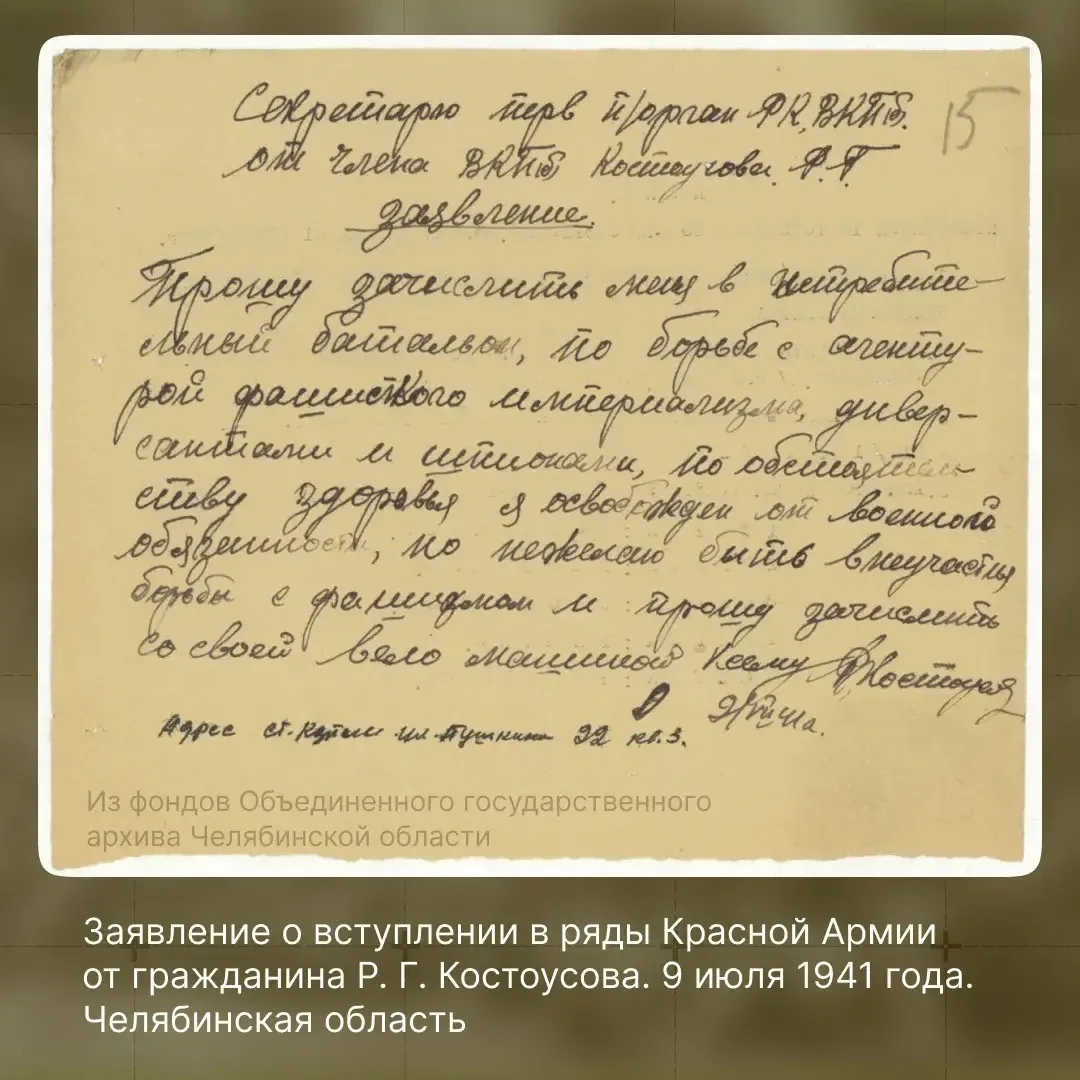 Секретарю перв п/орган РК, ВКПб. 15
от члена ВКПб Костоусова. Р. Г.
заявление.
Прошу зачислить меня в истребите-
льный батальон, по борьбе с агенту-
рой фашисткого империализма, дивер-
сантами и шпионами, по обстоятель-
ству здоровья я освобожден от военного
обязанности, но нежелаю быть внеучастия
борьбы с фашизмом и прошу зачислить
со своей вело машиной Ксему РКостоусов
9/VII 41 а.
Адрес ст. ул Пушкина 22 кв. 3.
Из фондов Объединенного государственного
архива Челябинской области
Заявление о вступлении в ряды Красной Армии
от гражданина Р. Г. Костоусова. 9 июля 1941 года.
Челябинская область